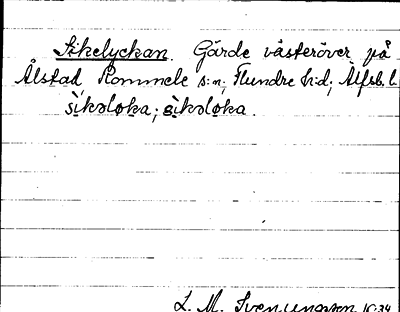 Sikelyckan. Gärde västeröver på
Ålstad, Rommele s:n, Flundre h:d, Älfsb. l.
sìkəloka; sìkəloka.
L. M. Svenungsson 1934